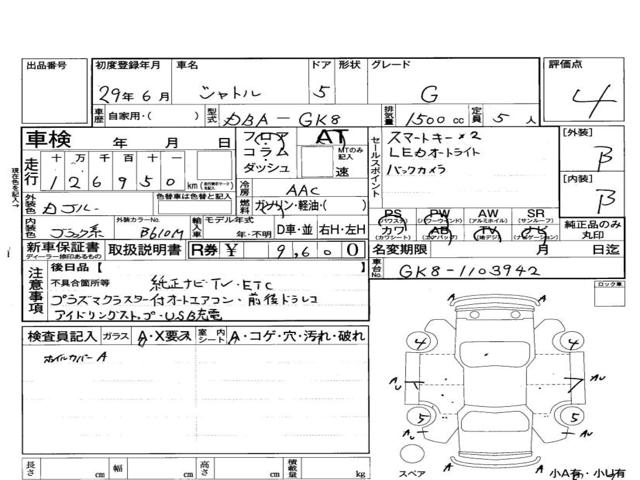 出品番号
初度登録年月 車名 ドア 形状 グレード 評価点
29年6月 シャトル 5 G 4
車歴 自家用・( ) 型式 DBA-GK8 排気量 1500cc 定員 5人
車検 年 月 日
走行 十 万 千 百 十 一
126950 km
フロア
コラム
ダッシュ
AT
MTのみ記入
速
冷房 AAC
燃料 ガソリン・軽油・( )
セールスポイント
スマートキー×2
LEDオートライト
バックカメラ
[外装]
B
[内装]
B
現在色を記入→
外装色
色替車は色替と記入
内装色 ブラック系 外装カラーNo. B610M
輸入車 モデル年式 年・不明 D車・並 右H・左H
PS (パワステ) PW (パワーウインド) AW (アルミホイル) SR (サンルーフ)
カワ (カワシート) AB (エアバッグ) TV (地デジ) ナビ (ナビゲーション)
純正品のみ丸印
新車保証書 取扱説明書 R券 ¥ 9,600
ディーラー捺印あるもの
名変期限 月 日迄
車台No. GK8-1103942
注意事項
後日品 [
不具合箇所等 純正ナビ・TV・ETC
プラズマクラスター付オートエアコン・前後ドラレコ
アイドリングストップ・USB充電
ロック車
検査員記入 ガラス A・X要ス 室内シート A・コゲ・穴・汚れ・破れ
ホイルカバーA
A
4 4
AU AU
5 5
AU AU
A A
スペア
小A有・小U有
長さ cm 幅 cm 高さ cm 積載量 kg